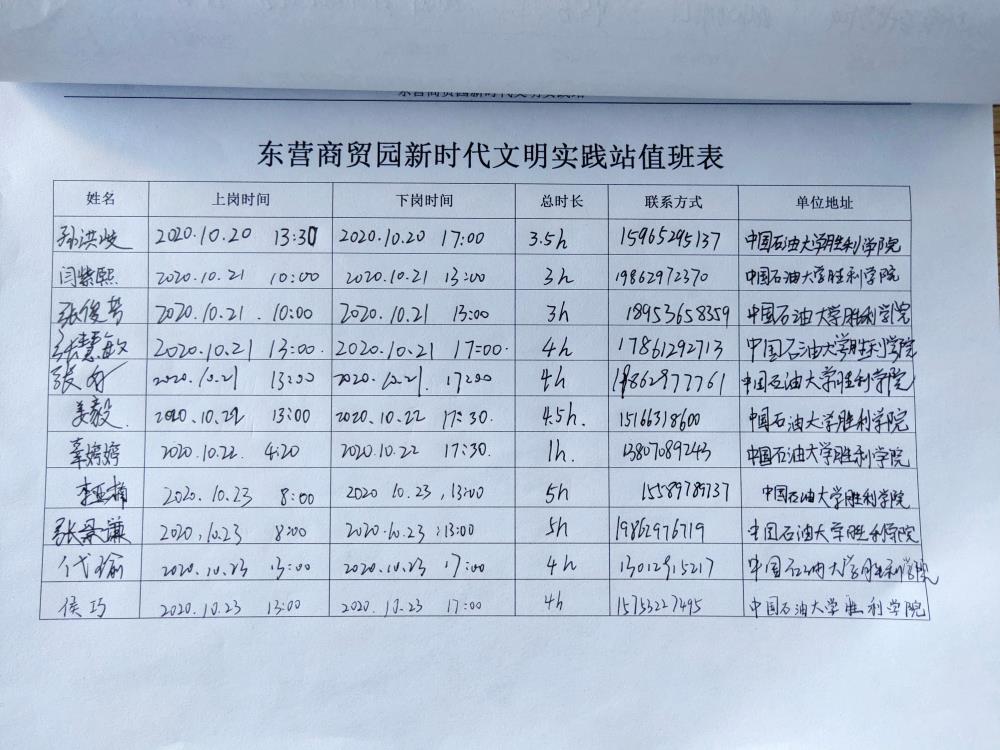 东营商贸园新时代文明实践站
东营商贸园新时代文明实践站值班表
姓名 上岗时间 下岗时间 总时长 联系方式 单位地址
孙洪岐 2020.10.20 13:30 2020.10.20 17:00 3.5h 15965295137 中国石油大学胜利学院
闫紫熙 2020.10.21 10:00 2020.10.21 13:00 3h 19862972370 中国石油大学胜利学院
张俊芳 2020.10.21. 10:00 2020.10.21 13:00 3h 18953658359 中国石油大学胜利学院
张慧敏 2020.10.21 13:00. 2020.10.21 17:00. 4h 17861292713 中国石油大学胜利学院
张 2020.10.21 13:00 2020.10.21. 17:00 4h 19862977761 中国石油大学胜利学院
姜毅. 2020.10.22 13:00 2020.10.22 17:30. 4.5h. 15166318600 中国石油大学胜利学院
辜婷婷 2020.10.22. 4:20 2020.10.22 17:30. 1h. 13807089243 中国石油大学胜利学院
李亚楠 2020.10.23 8:00 2020 10.23, 13:00 5h 15589789737 中国石油大学胜利学院
张景谦 2020.10.23 8:00 2020.10.23 13:00 5h 19862976719 中国石油大学胜利学院
代瑜 2020.10.23 13:00 2020.10.23 17:00 4h 13012915217 中国石油大学胜利学院
侯巧 2020.10.23 13:00 2020.10.23 17:00 4h 15753227495 中国石油大学胜利学院